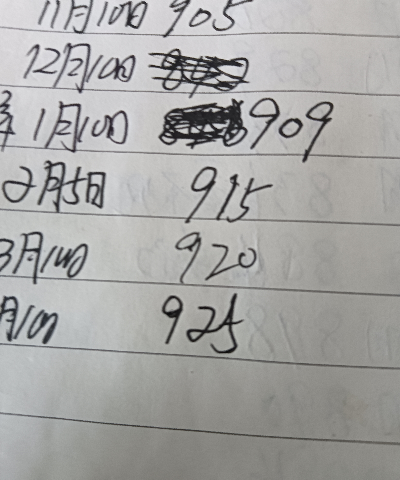 11月10日 905
12月10日
年1月10日 909
2月5日 915
3月10日 920
月10日 925